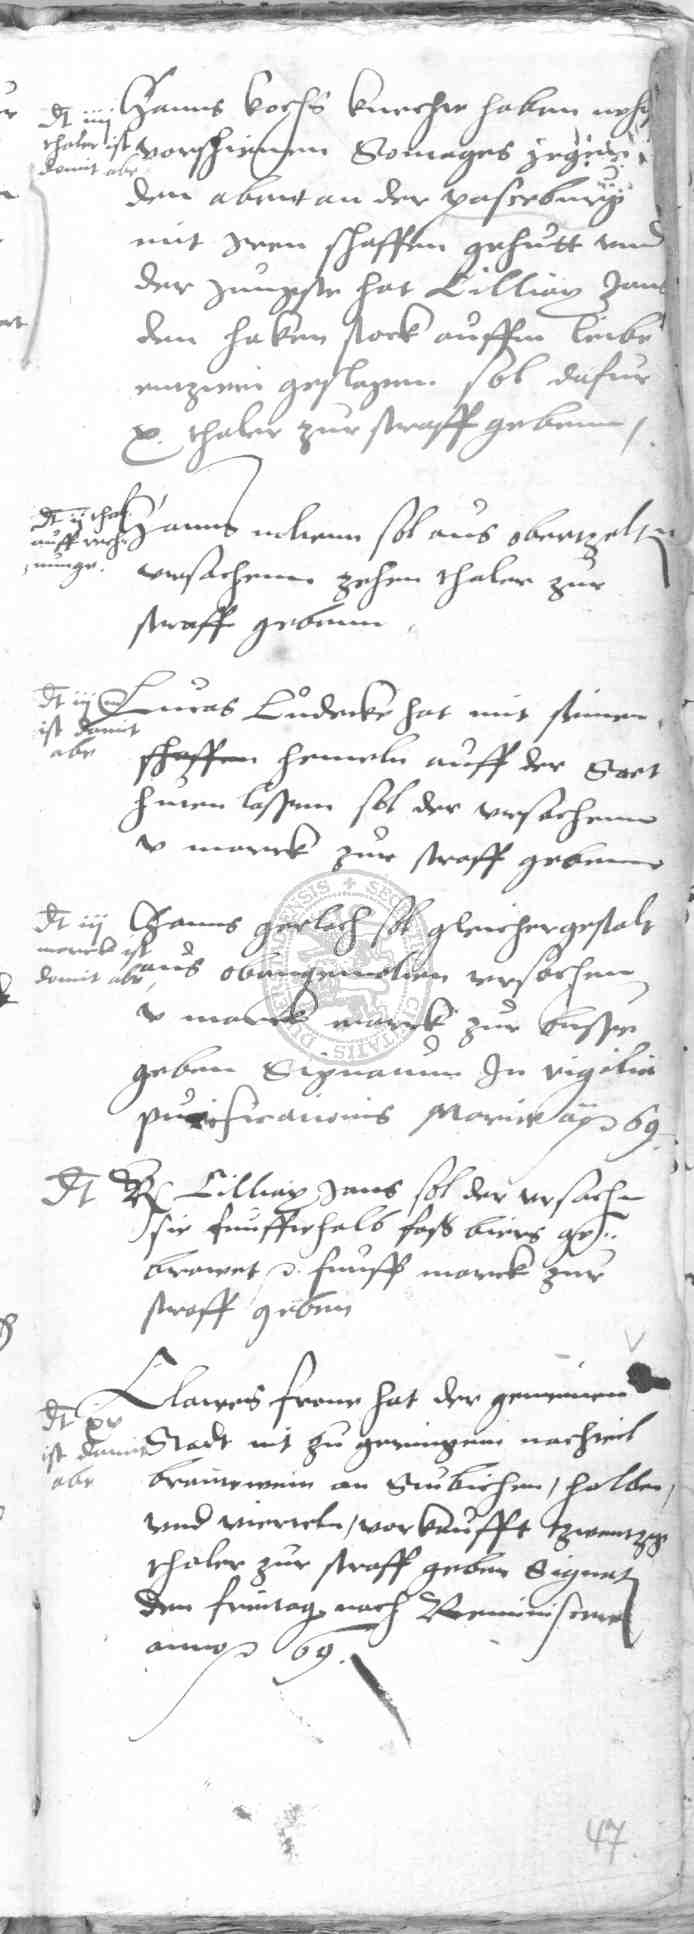 dt iiij
thaler ist
domit abe
Hanns Kochs knechte haben nehst
vorschienen Sontages jegen
den abent an der pasceburgk
mit iren schaffen gehutt und
der jungste hat Cilliax Jans
den haken stock auffm leibe
entzwei geslagen sol dafur
x. thaler zur straff gebenn /
dt ij thal
auff rech¬
nunge.
Hanns sol aus obertzelten
ursachenn zehen thaler zur
straff gebenn
dt iij m
ist damit
abe
Lucas Lůdecke hat mit seinen
schaffen hemeln auff der Saet
huten lassen sol der ursachenn
v marck zur straff gebenn
dt iij
marck ist
domit abe,
Hanns gerlach sol gleichergestalt
aus obangemelten ursachen
v marck marck zur busse
geben Signatum In vigilia
purificationis Marie ao 69
dt Cilliax Jans sol der ursachen
sie funfftehalb fass biers ge¬
brawet funff marck zur
straff geben
dt xv
ist damit
abe
Clawes frone hat der gemeinen
Stadt nit zu geringem nachteil
brantewein an Stubichen, halben,
und vierteln, vorkaufft tzwentzig
thaler zur straff geben Signat
den freitag nach Reminiscere
anno 69.
47